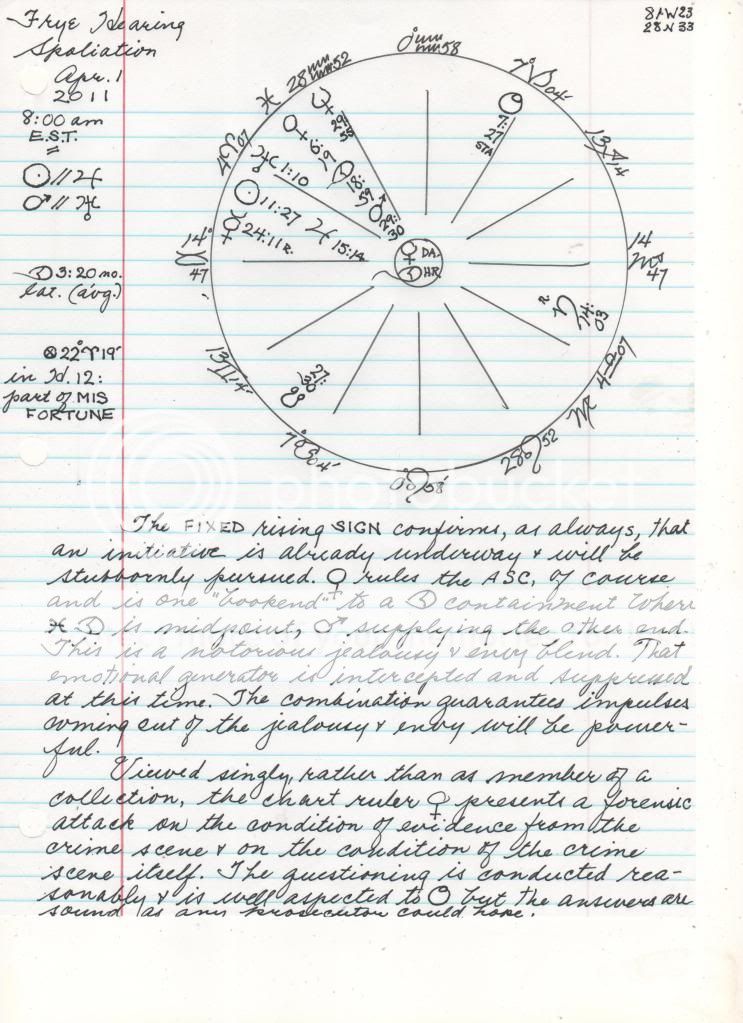 Frye Hearing
Spoliation
Apr. 1
2011
8:00 am
E.S.T.
☉//♃
♂//♅
☽ 3:20 mo.
lat. (avg.)
⊗ 22°♈19'
in H. 12:
part of MIS
FORTUNE
81W23
28N33
28 ♒ 52
0° ♒ 58
7° ♑ 04'
13 ♐ 14
14 ♏ 47
4 ♎ 07
♍
28 ♌ 52
0° ♌ 58'
7° ♋ 04'
13 ♊ 14'
14° ♉ 47
4 ♈ 07
♓
27:
STA
♅ 1:10
☉ 11:27
♃ 15:14
☿ 24:11 R.
R ♄ 14:03
☋
DA.
☽ HR.
The FIXED rising SIGN confirms, as always, that
an initiative is already underway & will be
stubbornly pursued. ♀ rules the ASC, of course
and is one "bookend" to a ☽ containment where
♓ ☽ is midpoint, ♂ supplying the other end.
This is a notorious jealousy & envy blend. That
emotional generator is intercepted and suppressed
at this time. The combination guarantees impulses
coming out of the jealousy & envy will be power-
ful.
Viewed singly, rather than as member of a
collection, the chart ruler ♀ presents a forensic
attack on the condition of evidence from the
crime scene & on the condition of the crime
scene itself. The questioning is conducted rea-
sonably & is well aspected to but the answers are
sound as any prosecutor could hope.
photobucket